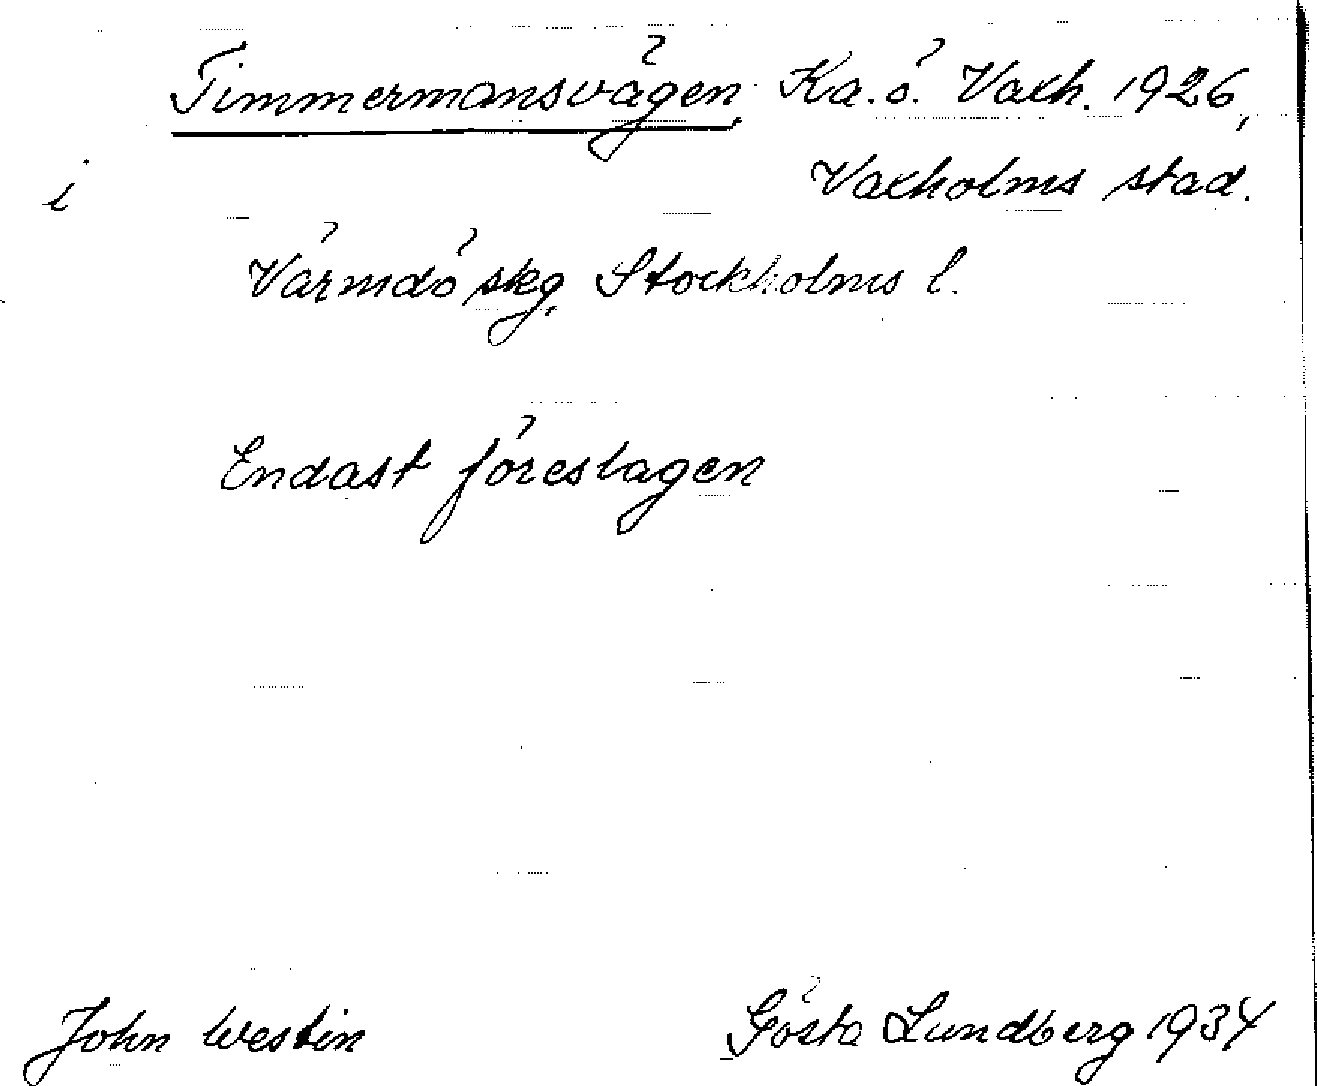 Timmermansvägen, Ka.ö. Vaxh. 1926,
i Vaxholms stad.
Värmdö skg, Stockholms l.
Endast föreslagen
John Westin Gösta Lundberg 1934